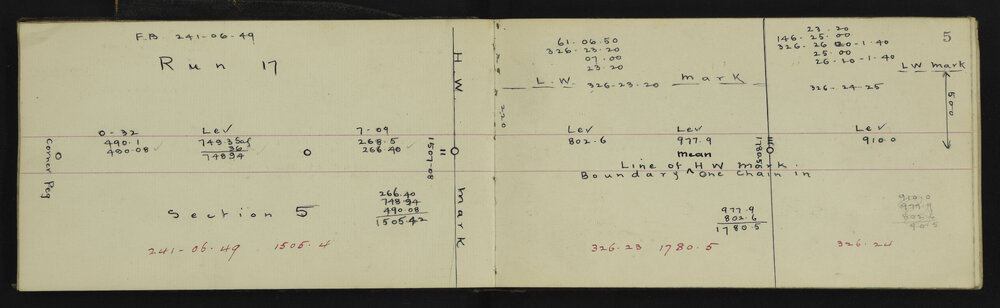 F.B. 241-06-49
Run 17
H.W. mark
0-32
490.1
490.08 ✓
Lev
749.3 Sag
36
748.94
7-09
268.5
266.40 ✓
Corner Peg
1507-08
II
266.40
748.94
490.08
1505.42
Section 5
241-06.49 1505.4
61.06.50
326-23.20
07.00
23.20
L.W. 326-23-20 mark
220
Lev
802.6
Lev
977.9
1780.56
III
mean
Line of H W mark.
Boundary ^ One Chain in
977.9
802.6
1780.5
326.23 1780.5
23.20
146.25.00
326-26 20-1-40
25.00
26-20-1-40
5
L W mark
326-24-25
500
Lev ✓
910.0
910.0
977.9
802.6
326.24